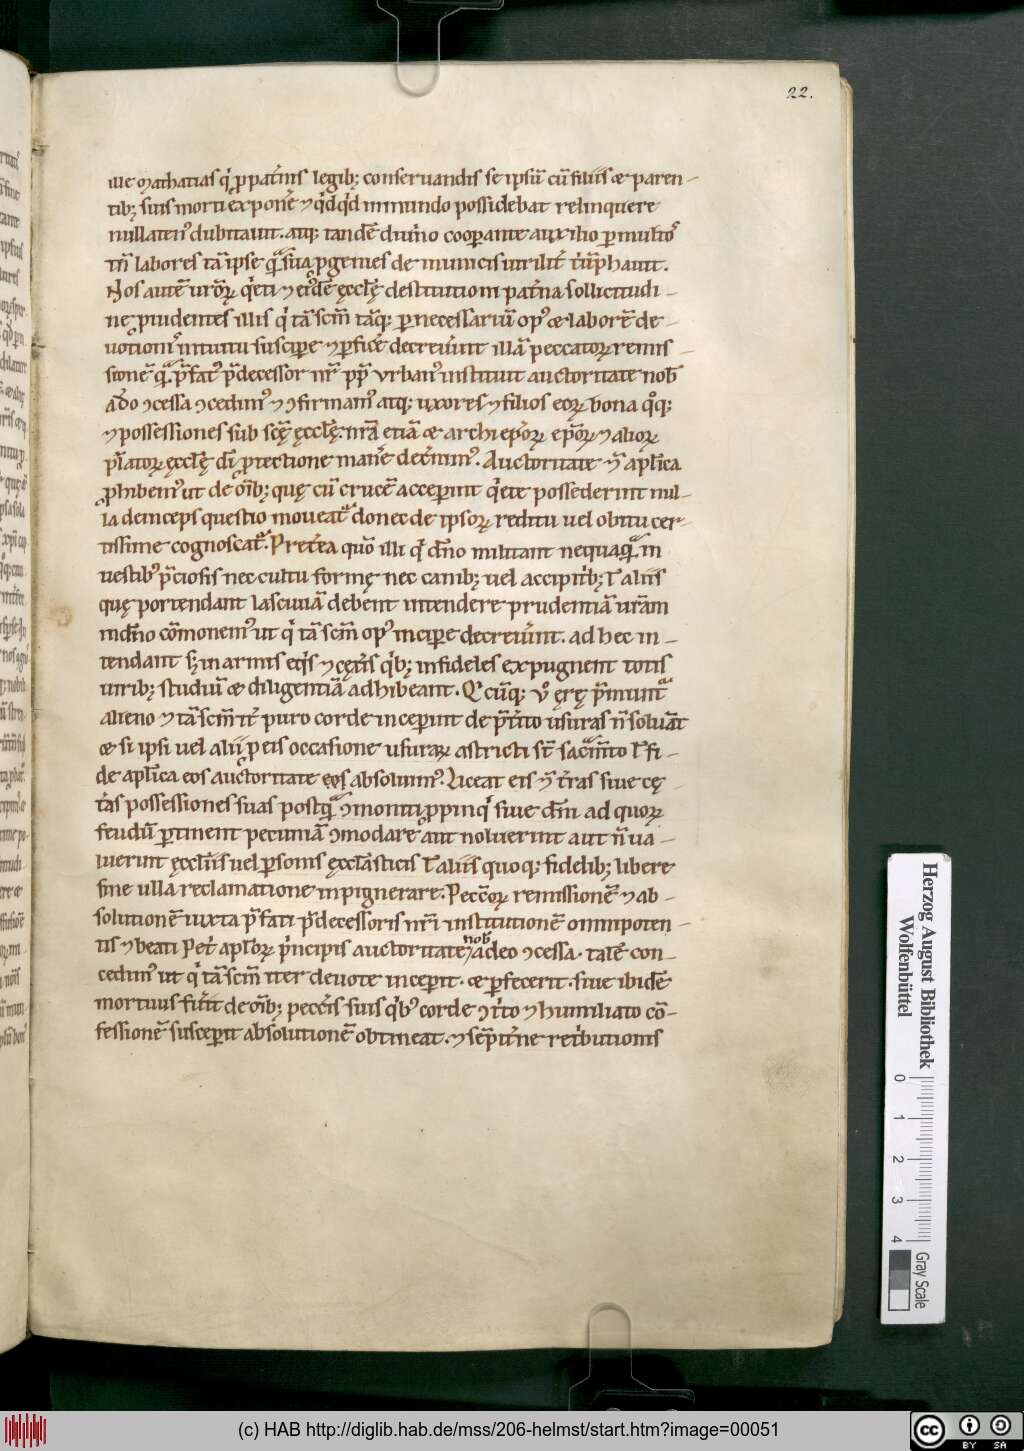 22.
ille mathatias q' ꝓ pat'nis legib; conseruandis se ipsū cū filiis æ paren-
tib; suis morti exponē ⁊ q'dq'd in mundo possidebat relinquere
nullaten' dubitauit. atq; tandē diuīno cooꝑante auxilio ꝑ multos
tn̄ labores tā ipse qua sua ꝓgenies de inimicis uirilit' t'ūphauit.
Nos autē uroꝝ q'eti ⁊ ei'dē ęcclę̄ destitutioni pat'na sollicitudi-
ne ꝓuidentes illis q' tā scm̄ tāq; ꝑ necessariū op' æ laborē de-
uotionis intuitu susciꝑe ⁊ ꝑficē decreuer̄t illā peccatoꝝ remis-
sionē quā p̄fat' p̄decessor nr̄ pp̄ vrban' instituit auctoritate nob̄
a do ↄcessa ↄcedim' ⁊ ↄfirmam' atq; uxores ⁊ filios eoꝝ bona qoq;
⁊ possessiones sub scę̄ ęcclę̄. nrā etiā æ archiepōꝝ epōꝝ ⁊ alioꝝ
p̄latoꝝ ęcclę̄ di ꝓtectione manē decr̄nim'. Auctoritate ⁊ apl̄ica
ꝓhibem' ut de oīb; quę cū crucē acceꝑint q'ete possederint nul-
la deinceps questio moueat' donec de ipsoꝝ reditu uel obitu cer-
tissime cognoscat'. Pret'ea quō illi q' dn̄o militant nequaquā in
uestib' p̄ciosis nec cultu formę nec canib; uel accipit'b; l aliis
quę portendant lasciuiā debent intendere prudentiā urām
in dn̄o cōmonem' ut q' tā scm̄ op' inciꝑe decreuer̄t. ad hec in-
tendant s; in armis eq's ⁊ cęt'is q'b; infideles expugnent totis
uirib; studiū æ diligentiā adhibeant. Q'cūq; u° ęrę p̄munt'
alieno ⁊ tā scm̄ it' puro corde inceꝑint de p̄t'ito usuras n̄ soluāt
æ si ipsi uel alii ꝓ eis occasione usuraꝝ astricti st̄ sac̄m̄to l fi-
de apl̄ica eos auctoritate eos absoluim'. Liceat eis ⁊ t'ras siue cę-
t'as possessiones suas postquā ↄmoniti ꝓpinq' siue dn̄i ad quoꝝ
feudū ꝑtinent pecuniā ↄmodare aut noluerint aut n̄ ua-
luerint ęccl̄iis uel ꝑsonis ęccl̄asticis l aliis quoq; fidelib; libere
sine ulla reclamatione inpignerare. Pecc̄oꝝ remissionē ⁊ ab-
solutionē iuxta p̄fati p̄decessoris nr̄i institutionē omnipoten-
tis ⁊ beati Pet' apl̄oꝝ p'ncipis auctoritate nob̄ a deo ↄcessa. talē con-
cedim' ut q' tā scm̄ iter deuote inceꝑit. æ ꝑfecerit. siue ibidē
mortuus fu'it de oīb; peccīs suis q'b' corde ↄt'to ⁊ humiliato cō-
fessionē susceꝑit absolutionē obtineat. ⁊ sēpit'ne ret'butionis
Herzog August Bibliothek
Wolfenbüttel
0 1 2 3 4
Gray Scale
(c) HAB http://diglib.hab.de/mss/206-helmst/start.htm?image=00051
cc BY SA